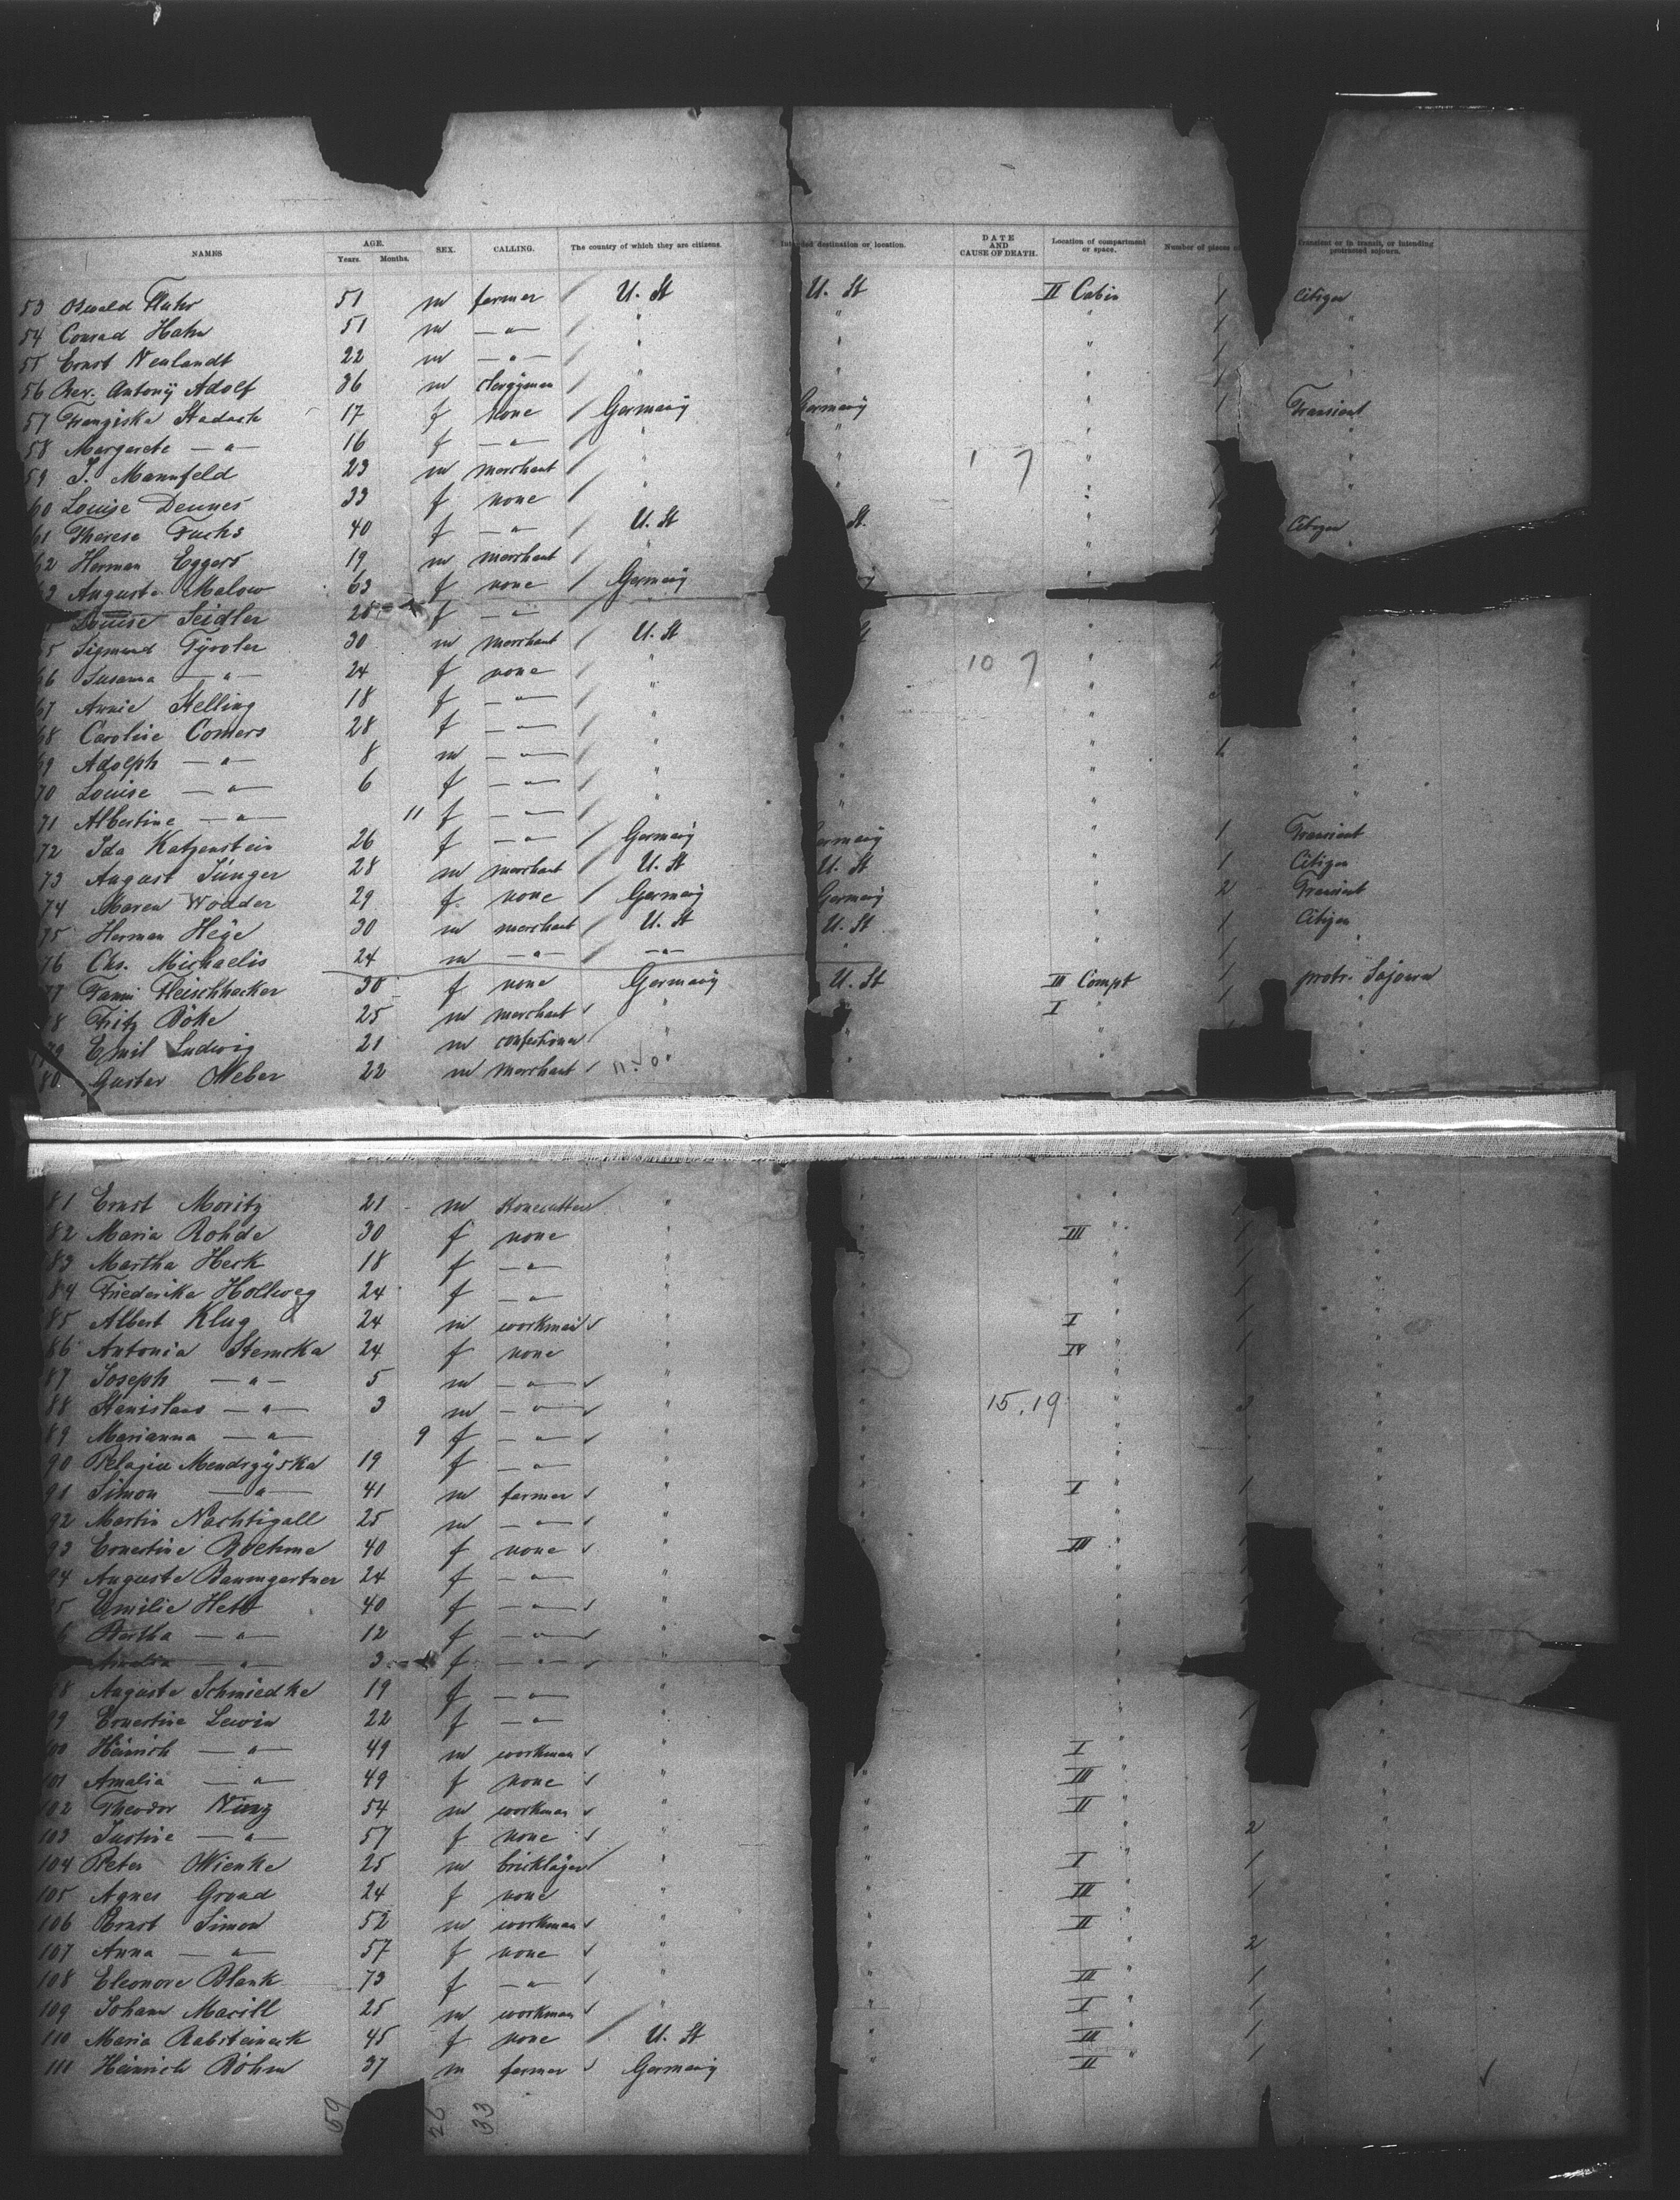 NAMES AGE. Years. Months. SEX. CALLING. The country of which they are citizens. Intended destination or location. DATE AND CAUSE OF DEATH. Location of compartment or space. Number of pieces Transient or in transit, or intending protracted sojourn.
53 Oswald 51 m farmer / U. St U. St II Cabin 1 Citizen
54 Conrad Hahn 51 m — " — / " " " 1 "
55 Ernst Neulandt 22 m — " — / " " " 1 "
56 Rev. Antony Adolf 36 m clergyman / " " " 1 "
57 Franziska 17 f none / Germany Germany " 1 Transient
58 Margarete — " — 16 f — " — / " " " "
59 J. Mannfeld 23 m merchant / " " 1 7 " 1 "
60 Louise Dennes 33 f none / " " 1 "
61 Therese Fuchs 40 f — " — / U. St St. " 1 Citizen
62 Herman Eggers 19 m merchant / " " "
3 Auguste Malow 63 f none / Germany y "
Louise Seidler 28 f — " — / "
5 Sigmund Tyroler 30 m merchant / U. St t " "
66 Susanna — " — 24 f none / " 10 7 " 2 "
67 Annie Stelling 18 f — " — / " " "
68 Caroline Comers 28 f — " — / " " " "
69 Adolph — " — 8 m — " — / " " " "
70 Louise — " — 6 f — " — / " " " "
71 Albertine — " — 11 f — " — / " " " "
72 Ida Katzenstein 26 f — " — / Germany ermany " 1 Transient
73 August Jünger 28 m merchant / U. St U. St " 1 Citizen
74 Maren Wodder 29 f none / Germany Germany " 2 Transient
75 Herman Hege 30 m merchant / U. St U. St " 1 Citizen
76 Chs. Michaelis 24 m — " — / — " — " " 1 "
77 Fanni Fleischhacker 30 f none Germany U. St III Compt 1 protr. Sojourn
78 Fritz Böke 25 m merchant " " I " 1 "
79 Emil Ludwig 21 m confectioner " " " "
80 Gustav Weber 22 m merchant " " " "
81 Ernst Moritz 21 m stonecutter " " " "
82 Maria Rohde 30 f none " " III " 1 "
83 Martha Heck 18 f — " — " " " 1 "
84 Friederike Hollweg 24 f — " — " " " 1 "
85 Albert Klug 24 m workman " " I " 1 "
86 Antonia Stemcka 24 f none " " IV " 1 "
87 Joseph — " — 5 m — " — " " " "
88 Stanislaus — " — 3 m — " — " " 15.19 " 3 "
89 Marianna — " — 9 f — " — " " " "
90 Pelagia Mendrzyska 19 f — " — " " " "
91 Simon — " — 41 m farmer " " I " 1 "
92 Martin Nachtigall 25 m — " — " " " "
93 Ernestine Boehme 40 f none " " III " 1 "
94 Auguste Baumgartner 24 f — " — " " " "
95 Emilie Hett 40 f — " — " " "
6 Bertha — " — 12 f — " — " " "
Amalia — " — 3 f — " — " "
98 Auguste Schmiedke 19 f — " — " " "
99 Ernestine Lewin 22 f — " — " " 1 "
100 Heinrich — " — 49 m workman " " I " "
101 Amalia — " — 49 f none " " III " "
102 Theodor 54 m workman " " II " "
103 Justine — " — 57 f none " " " 2 "
104 Peter Wienke 25 m bricklayer " " I " 1 "
105 Agnes 24 f none " " III " 1 "
106 Ernst Simon 52 m workman " " II " "
107 Anna — " — 57 f none " " " 2 "
108 Eleonore Blank 73 f — " — " " III " 1 "
109 Johann 25 m workman " " I " 1 "
110 Maria Rabsteineck 45 f none / U. St " III " 1 "
111 Heinrich Böhm 37 m farmer Germany " II " 1 "
59 26 33